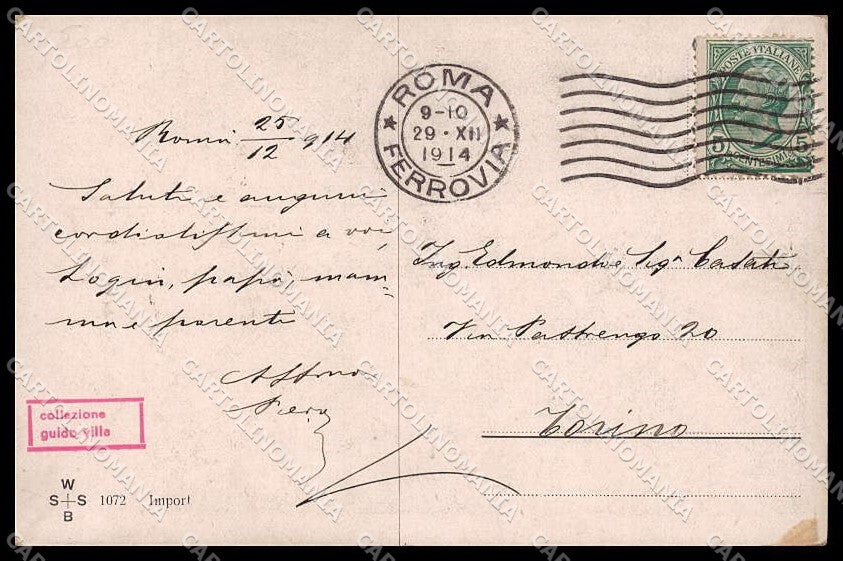 Roma 25/12 914
Saluti e auguri
cordialissimi a voi
papà, mam-
ma e parenti
ROMA
9-10
29·XII
1914
FERROVIA
POSTE ITALIANE
5 CENTESIMI 5
Ing. Edmondo e Sig.ra Casati
Via Pastrengo 20
Torino
collezione
guido villa
W
S S
B
1072 Import
CARTOLINOMANIA